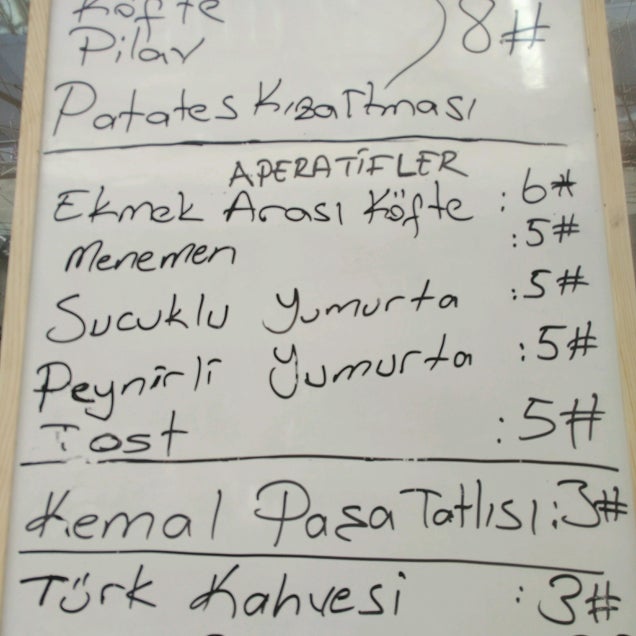 Köfte
Pilav 8#
Patates Kızartması
APERATİFLER
Ekmek Arası Köfte : 6#
Menemen : 5#
Sucuklu Yumurta : 5#
Peynirli Yumurta : 5#
Tost : 5#
Kemal Paşa Tatlısı : 3#
Türk Kahvesi : 3#